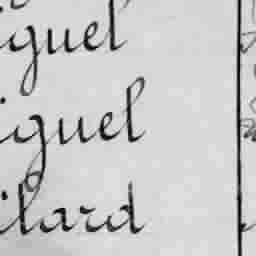 iguel
iguel
ilard